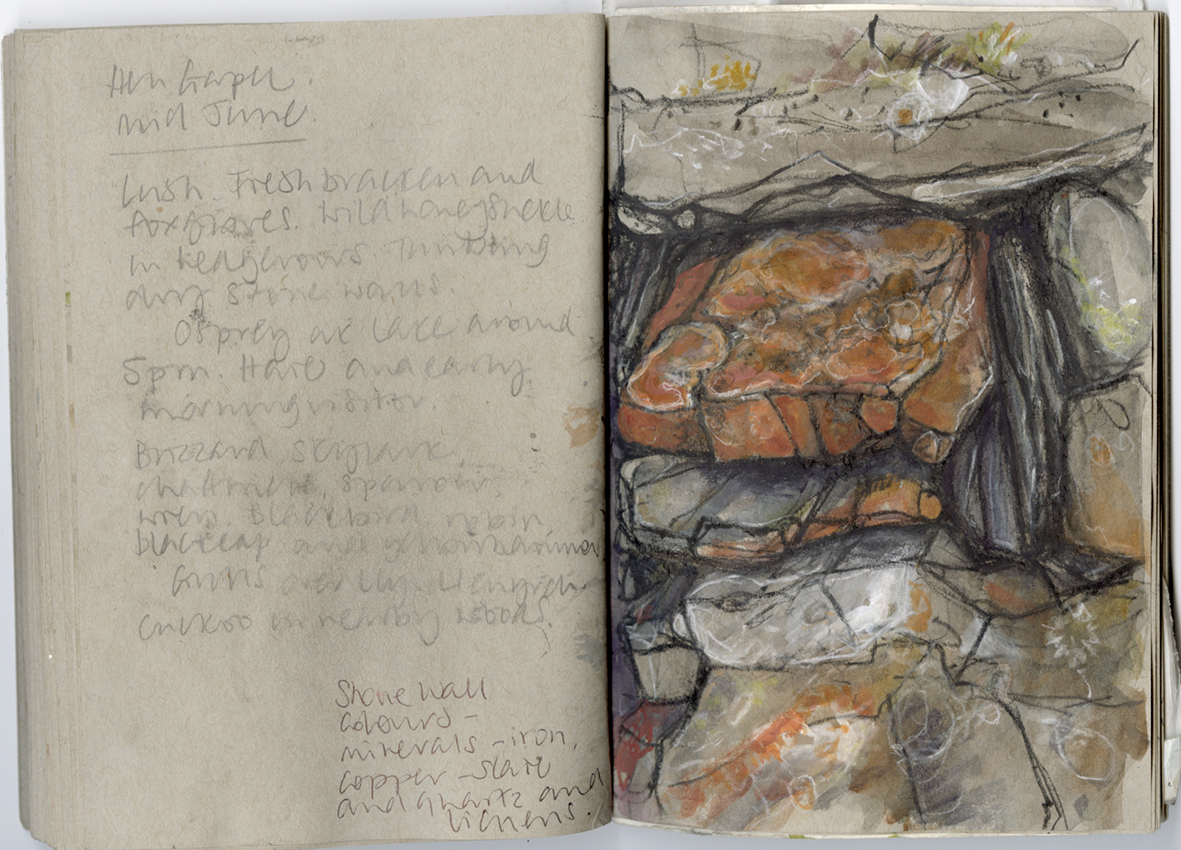 Hen Gapel.
mid June.
Lush. Fresh bracken and
foxgloves. Wild honeysuckle
in hedgerows. Thrift
dry stone walls.
Osprey at lake around
5pm Hare and early
morning visitor
Buzzard Skylark
chaffinch, sparrow,
wren. blackbird robin,
blackcap and yellowhammer
Gulls
cuckoo in nearby woods.
Stone wall
colours -
minerals - iron,
copper - slate
and quartz and
lichens.